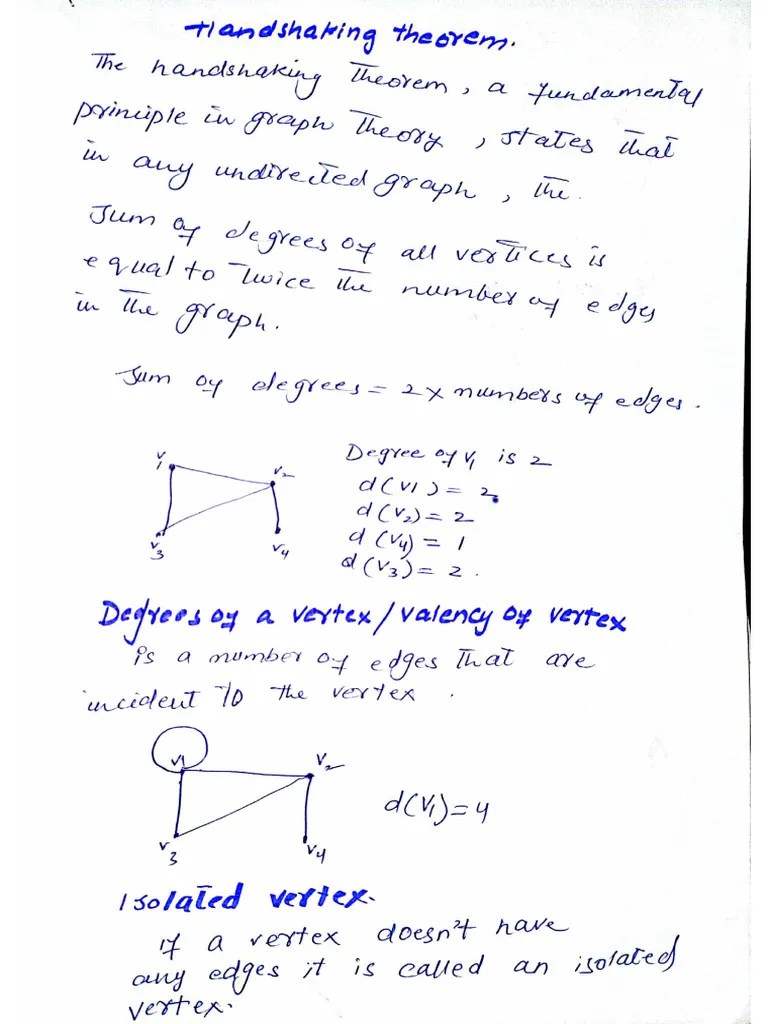 Handshaking theorem.
The handshaking Theorem, a fundamental
principle in graph Theory, states that
in any undirected graph, the.
Sum of degrees of all vertices is
equal to Twice the number of edges
in the graph.
Sum of degrees = 2 x numbers of edges.
V1
V2
V3
V4
Degree of V1 is 2
d(V1) = 2
d(V2) = 2
d(V4) = 1
d(V3) = 2.
Degrees of a vertex/valency of vertex
is a number of edges That are
incident To the vertex.
V1
V2
V3
V4
d(V1)=4
Isolated vertex.
if a vertex doesn't have
any edges it is called an isolated
vertex.